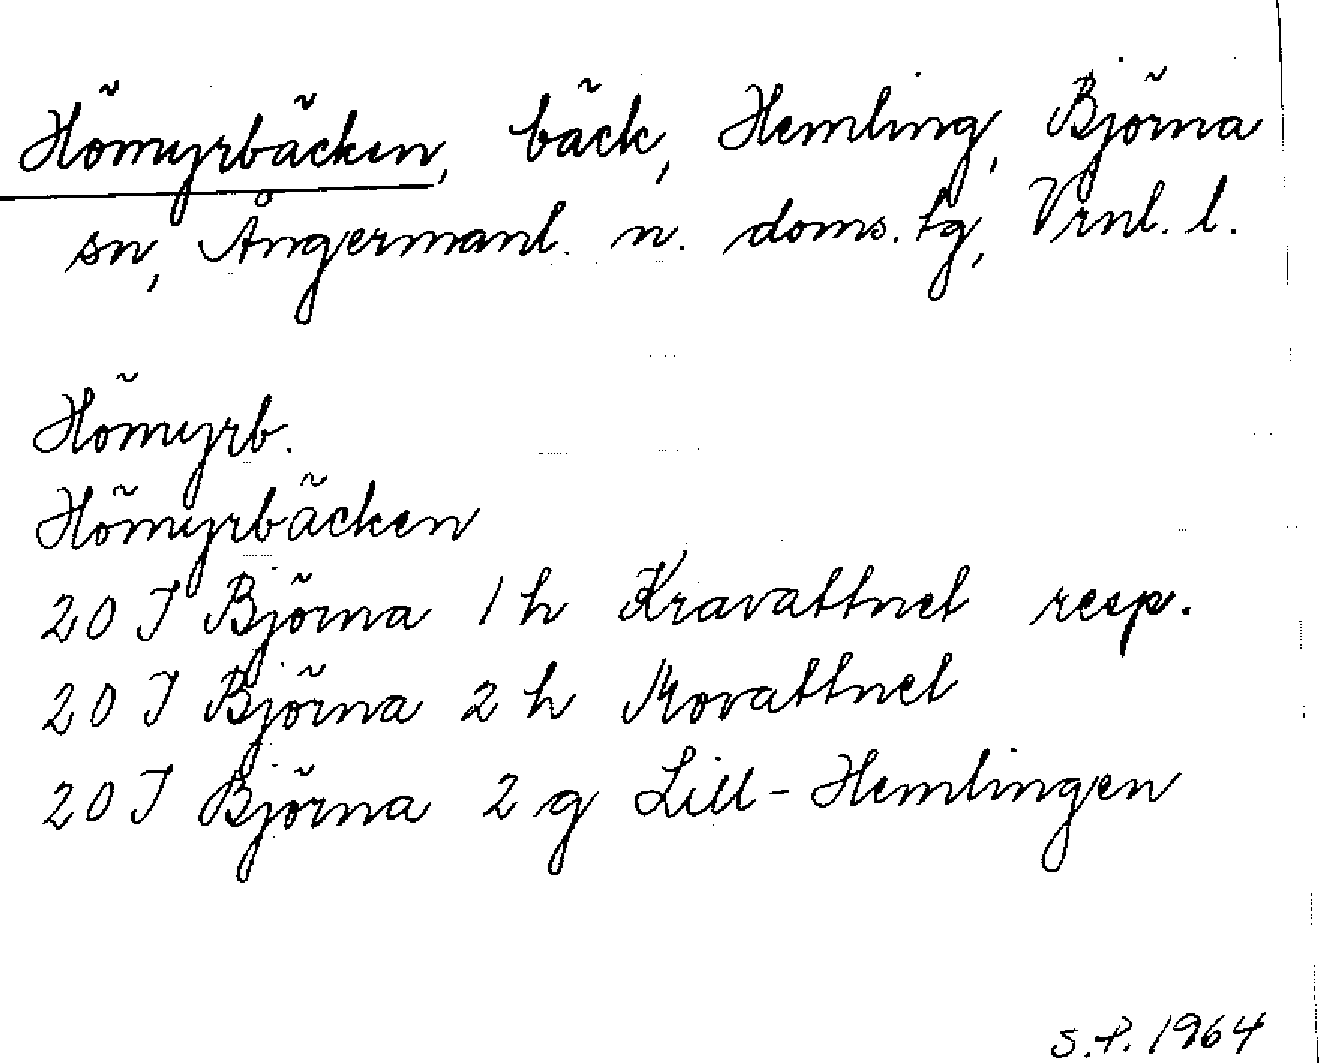 Hömyrbäcken, bäck, Hemling, Björna
sn, Ångermanl. n. doms. tg, Vrnl. l.
Hömyrb.
Hömyrbäcken
20 J Björna 1 h Kravattnet resp.
20 J Björna 2 h Movattnet
20 J Björna 2 g Lill-Hemlingen
S.P. 1964